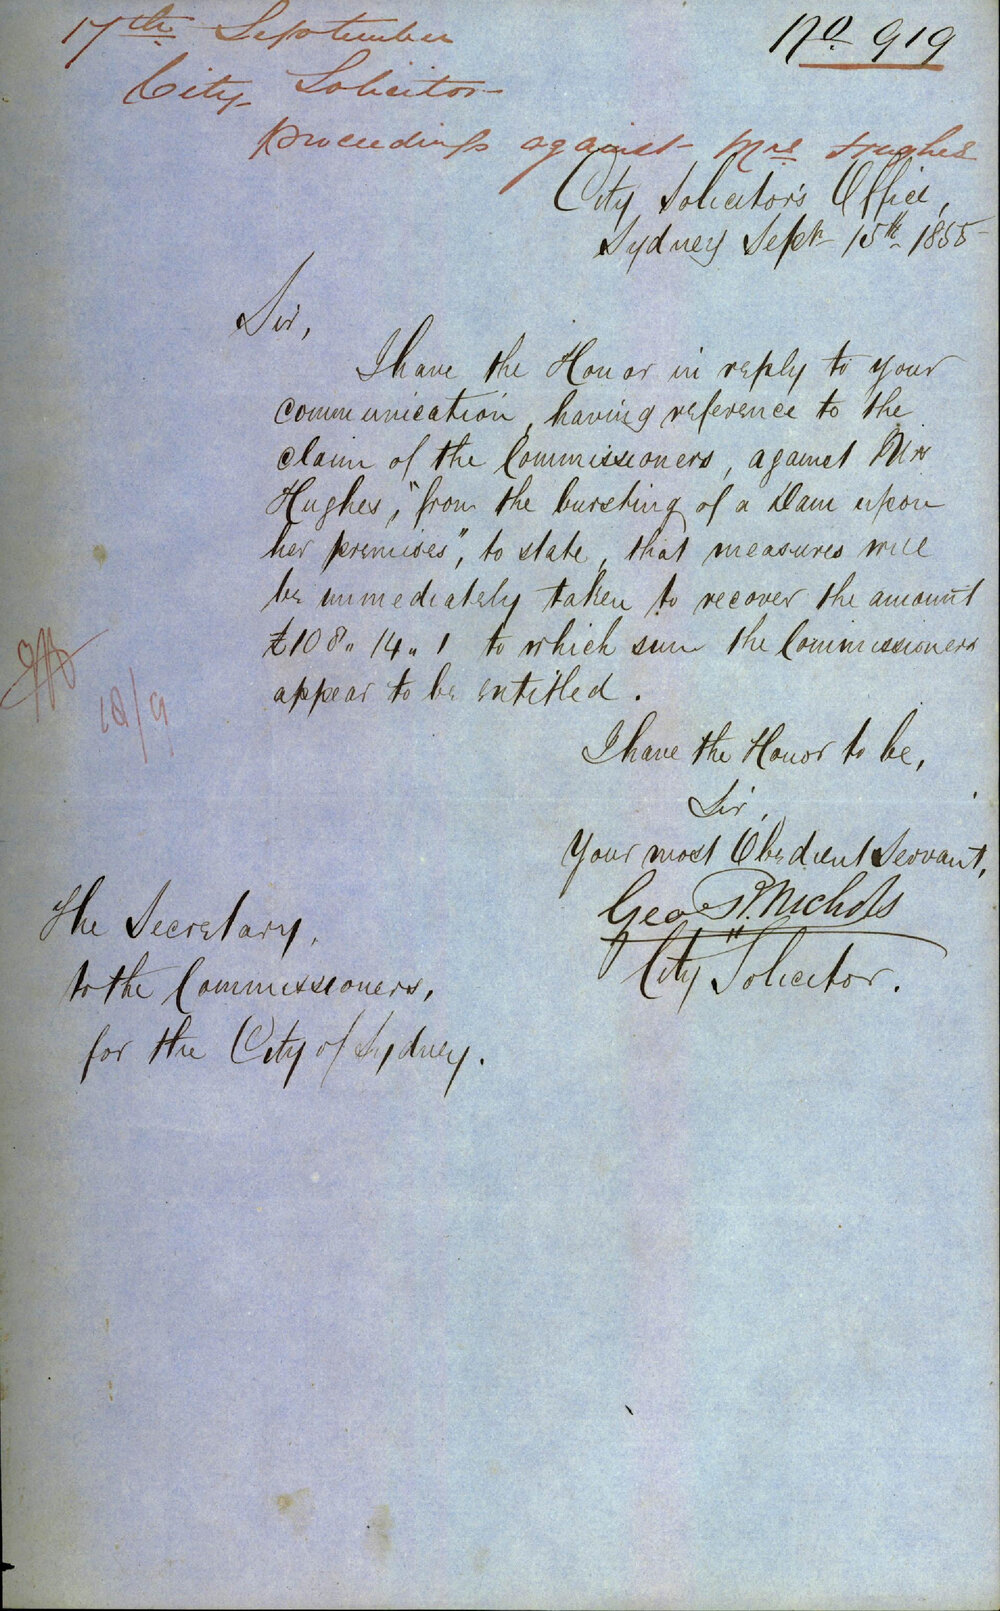 17th September
No 919
City Solicitor
Proceedings against Mrs Hughes
City Solicitor's Office,
Sydney Sept 15th 1855
Sir,
I have the Honor in reply to your
communication, having reference to the
claim of the Commissioners, against Mrs
Hughes, "from the bursting of a Dam upon
her premises", to state, that measures will
be immediately taken to recover the amount
£108.. 14.. 1 to which sum the Commissioners
appear to be entitled.
18/9
I have the Honor to be,
Sir,
Your most Obedient Servant,
Geo R. Nichols
City Solicitor.
The Secretary,
to the Commissioners,
for the City of Sydney.